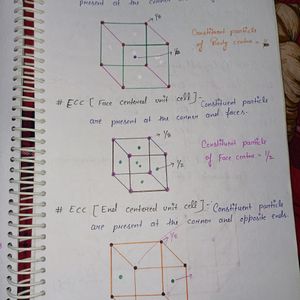 present at the corner and
1/8
Constituent particle
of Body centre =
# ECC [Face centered unit cell]- Constituent particle
are present at the corner and faces.
1/8
1/2
Constituent particle
of Face centre = 1/2
# ECC [End centered unit cell]- Constituent particle
are present at the corner and opposite ends.
1/8